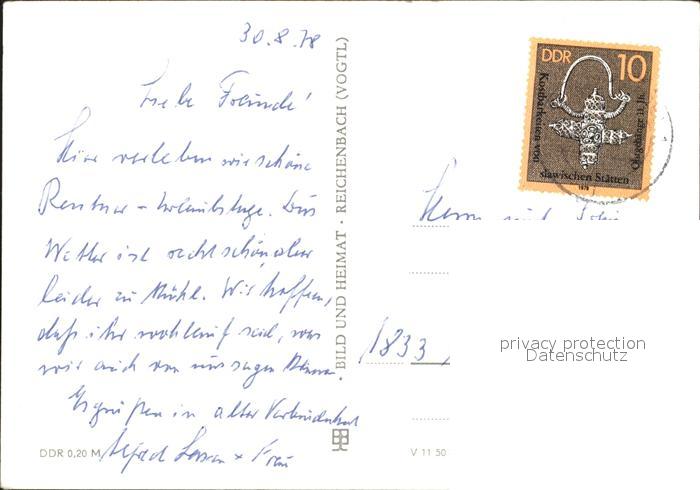 30.8.78
Liebe Freunde!
Hier verleben wir schöne
Rentner-Urlaubstage. Das
Wetter ist recht schön aber
leider zu kühl. Wir hoffen,
daß ihr wohlauf seid, was
wir auch von uns sagen können.
Es grüßen in alter Verbundenheit
Alfred + Frau
DDR 0,20 M
BILD UND HEIMAT · REICHENBACH (VOGTL)
V 11 50
DDR 10
Kostbarkeiten von
slawischen Stätten
Ohrgehänge 11. Jh.
1978
Herrn und
1833
privacy protection
Datenschutz